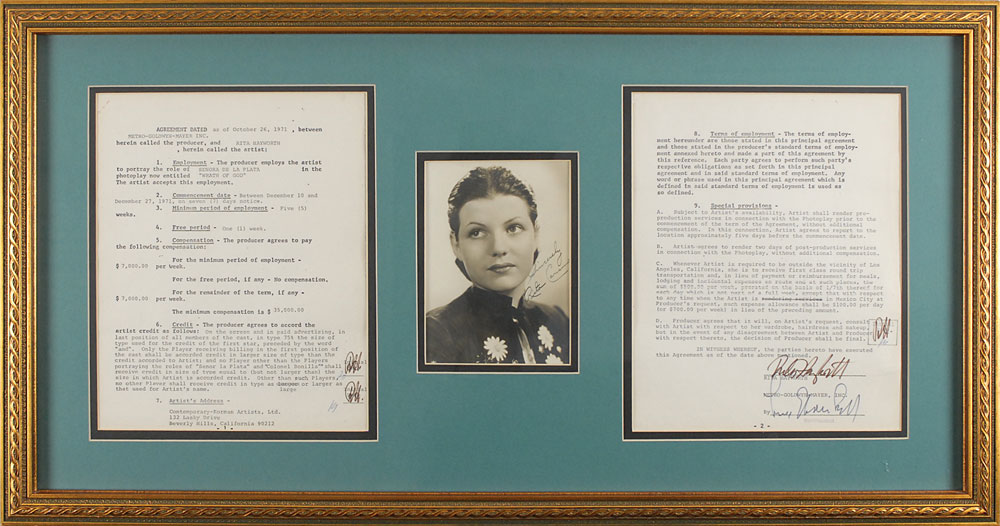 AGREEMENT DATED as of October 26, 1971 , between
METRO-GOLDWYN-MAYER INC.
herein called the producer, and RITA HAYWORTH
, herein called the artist:
1. Employment - The producer employs the artist
to portray the role of SENORA DE LA PLATA in the
photoplay now entitled "WRATH OF GOD"
The artist accepts this employment.
2. Commencement date - Between December 10 and
December 27, 1971, on seven (7) days notice.
3. Minimum period of employment - Five (5)
weeks.
4. Free period - One (1) week.
5. Compensation - The producer agrees to pay
the following compensation:
For the minimum period of employment -
$ 7,000.00 per week.
For the free period, if any - No compensation.
For the remainder of the term, if any -
$ 7,000.00 per week.
The minimum compensation is $ 35,000.00
6. Credit - The producer agrees to accord the
artist credit as follows: On the screen and in paid advertising, in
last position of all members of the cast, in type 75% the size of
type used for the credit of the first star, preceded by the word
"and". Only the Player receiving billing in the first position of
the cast shall be accorded credit in larger size of type than the
credit accorded to Artist; and no Player other than the Players
portraying the roles of "Senor la Plata" and "Colonel Bonilla" shall
receive credit in size of type equal to (but not larger than) the
size in which Artist is accorded credit. Other than such Players,
no other Player shall receive credit in type as large or larger as
that used for Artist's name.
large
RH
RH
7. Artist's Address -
Contemporary-Korman Artists, Ltd.
132 Lasky Drive
Beverly Hills, California 90212
- 1 -
Sincerely
Rita Cansino
8. Terms of employment - The terms of employ-
ment hereunder are those stated in this principal agreement
and those stated in the producer's standard terms of employ-
ment annexed hereto and made a part of this agreement by
this reference. Each party agrees to perform such party's
respective obligations as set forth in this principal
agreement and in said standard terms of employment. Any
word or phrase used in this principal agreement which is
defined in said standard terms of employment is used as
so defined.
9. Special provisions -
A. Subject to Artist's availability, Artist shall render pre-
production services in connection with the Photoplay prior to the
commencement of the term of the Agreement, without additional
compensation. In this connection, Artist agrees to report to the
location approximately five days before the commencement date.
B. Artist agrees to render two days of post-production services
in connection with the Photoplay, without additional compensation.
C. Whenever Artist is required to be outside the vicinity of Los
Angeles, California, she is to receive first class round trip
transportation and, in lieu of payment or reimbursement for meals,
lodging and incidental expenses en route and at such places, the
sum of $500.00 per week, prorated on the basis of 1/7th thereof for
each day which is not part of a full week, except that with respect
to any time when the Artist is rendering services in Mexico City at
Producer's request, such expense allowance shall be $100.00 per day
for $700.00 per week) in lieu of the preceding amount.
D. Producer agrees that it will, on Artist's request, consult
with Artist with respect to her wardrobe, hairdress and makeup,
but in the event of any disagreement between Artist and Producer
with respect thereto, the decision of Producer shall be final.
RH
IN WITNESS WHEREOF, the parties hereto have executed
this Agreement as of the date above mentioned.
Rita Hayworth
RITA HAYWORTH
METRO-GOLDWYN-MAYER, INC.
By
- 2 -